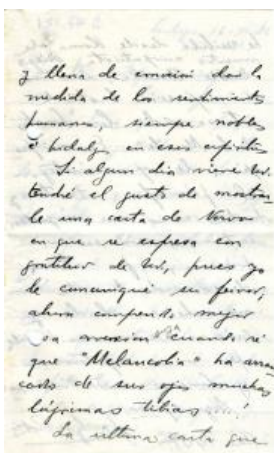 y llena de emoción da la
medida de los sentimientos
humanos, siempre nobles
é hidalgos en esos espíritus
Si algun dia viene Ud.
tendré el gusto de mostrar
le una carta de Nervo
en que se espresa con
gratitud de Ud., pues yo
le comuniqué su fervor;
ahora comprendo mejor
su cuando sé
que "Melancolia" ha arran
cado de sus ojos muchas
lágrimas tibias....!
La ultima carta que